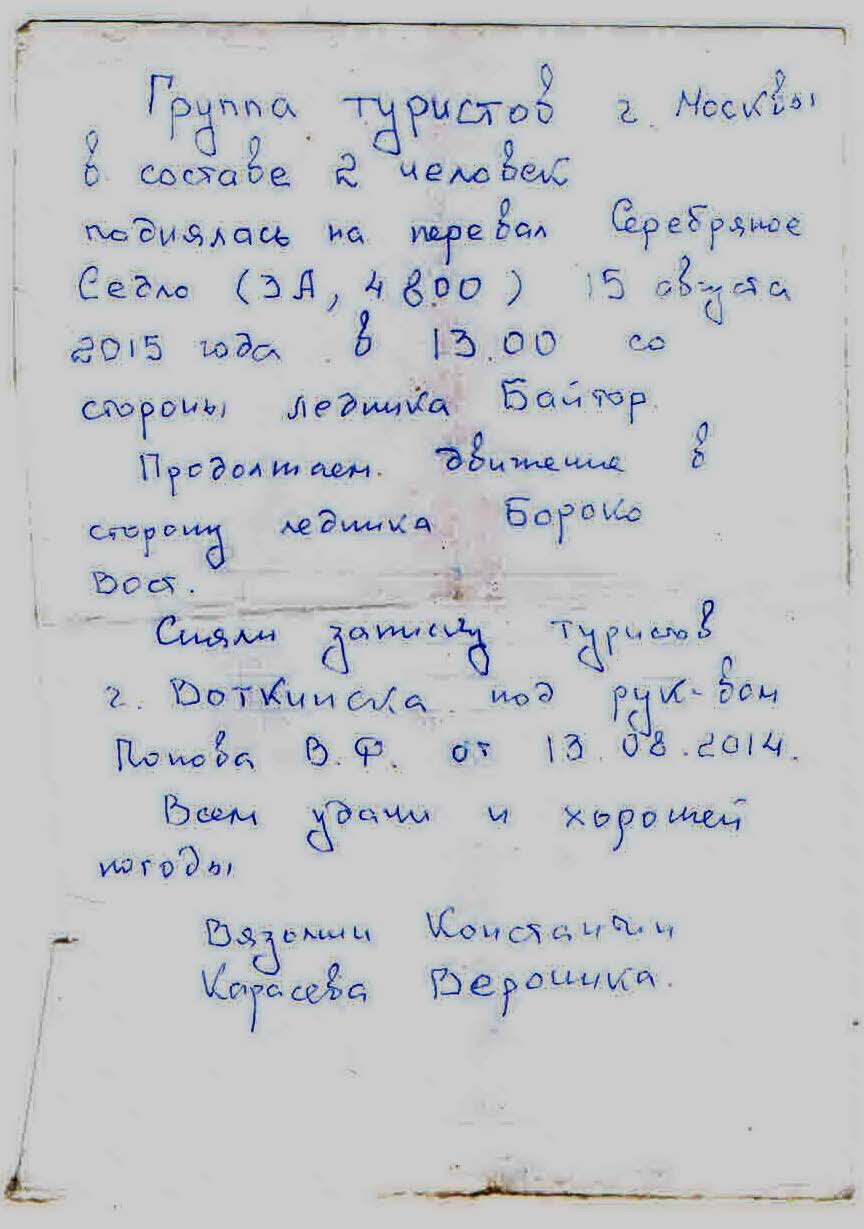 Группа туристов г. Москвы
в составе 2 человек
поднялась на перевал Серебряное
Седло (3А, 4800) 15 августа
2015 года в 13.00 со
стороны ледника Байтор.
Продолжаем движение в
сторону ледника Бороко
Вост.
Сняли записку туристов
г. Воткинска под рук-вом
Попова В.Ф. от 13.08.2014.
Всем удачи и хорошей
погоды
Вязьмин Константин
Карасева Вероника.